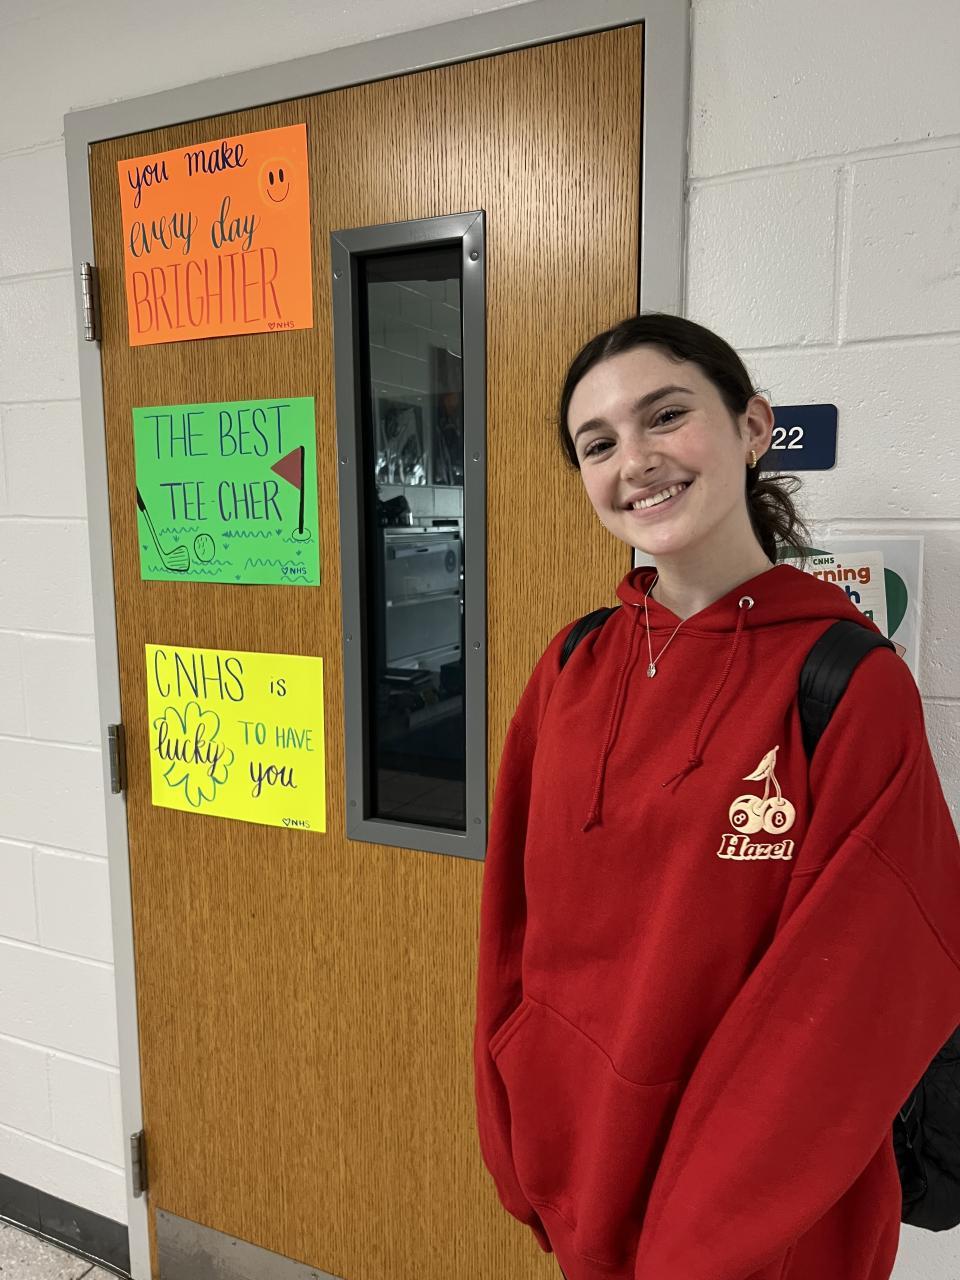 you make
every day
BRIGHTER
♡NHS
THE BEST
TEE-CHER
♡NHS
CNHS is
lucky TO HAVE
you
♡NHS
22
CNHS
8 8
Hazel